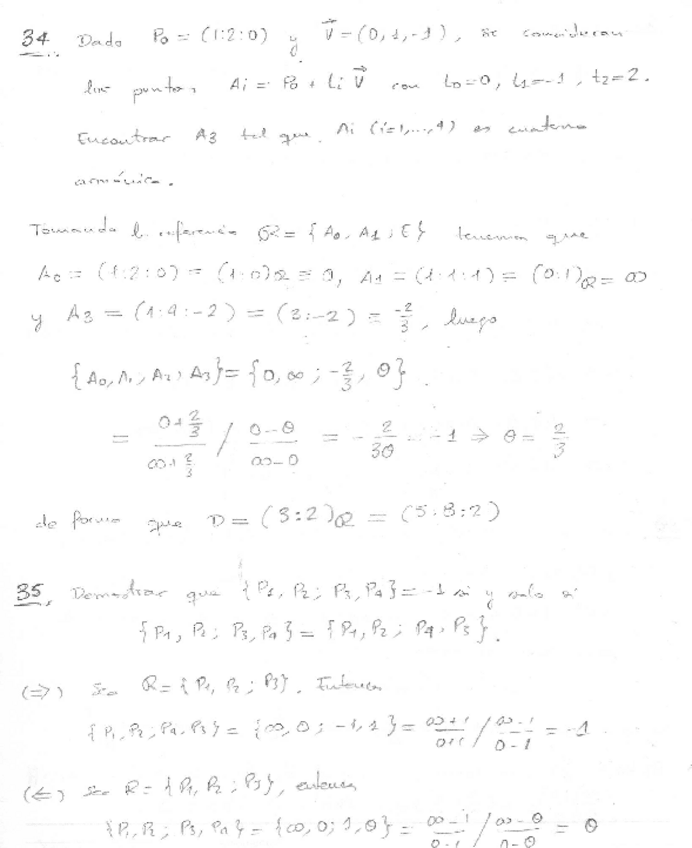 34. Dado P₀ = (1:2:0) y V⃗ = (0,1,-1), se consideran
los puntos Ai = P₀ + ti V⃗ con t₀=0, t₁=-1, t₂=2.
Encontrar A3 tal que Ai (i=1,...,4) es cuaterna
armónica.
Tomando la referencia R = {A₀, A₁; E} tenemos que
A₀ = (1:2:0) = (1:0)R = 0, A₁ = (1:1:1) = (0:1)R = ∞
y A₃ = (1:4:-2) = (3:-2) = -2/3, luego
{A₀, A₁; A₂, A₃} = {0, ∞; -2/3, θ}
= (0+2/3)/(∞+2/3) / (0-θ)/(∞-θ) = -2/3θ = -1 ⇒ θ = 2/3
de forma que D = (3:2)R = (5:8:2)
35. Demostrar que {P₁, P₂; P₃, P₄} = -1 si y solo si
{P₁, P₂; P₃, P₄} = {P₁, P₂; P₄, P₃}.
(⇒) Sea R = {P₁, P₂; P₃}. Entonces
{P₁, P₂; P₄, P₃} = {∞, 0; -1, 1} = (∞+1)/(0+1) / (∞-1)/(0-1) = -1
(⇐) Sea R = {P₁, P₂; P₃}, entonces
{P₁, P₂; P₃, P₄} = {∞, 0; 1, θ} = (∞-1)/(0-1) / (∞-θ)/(0-θ) = θ